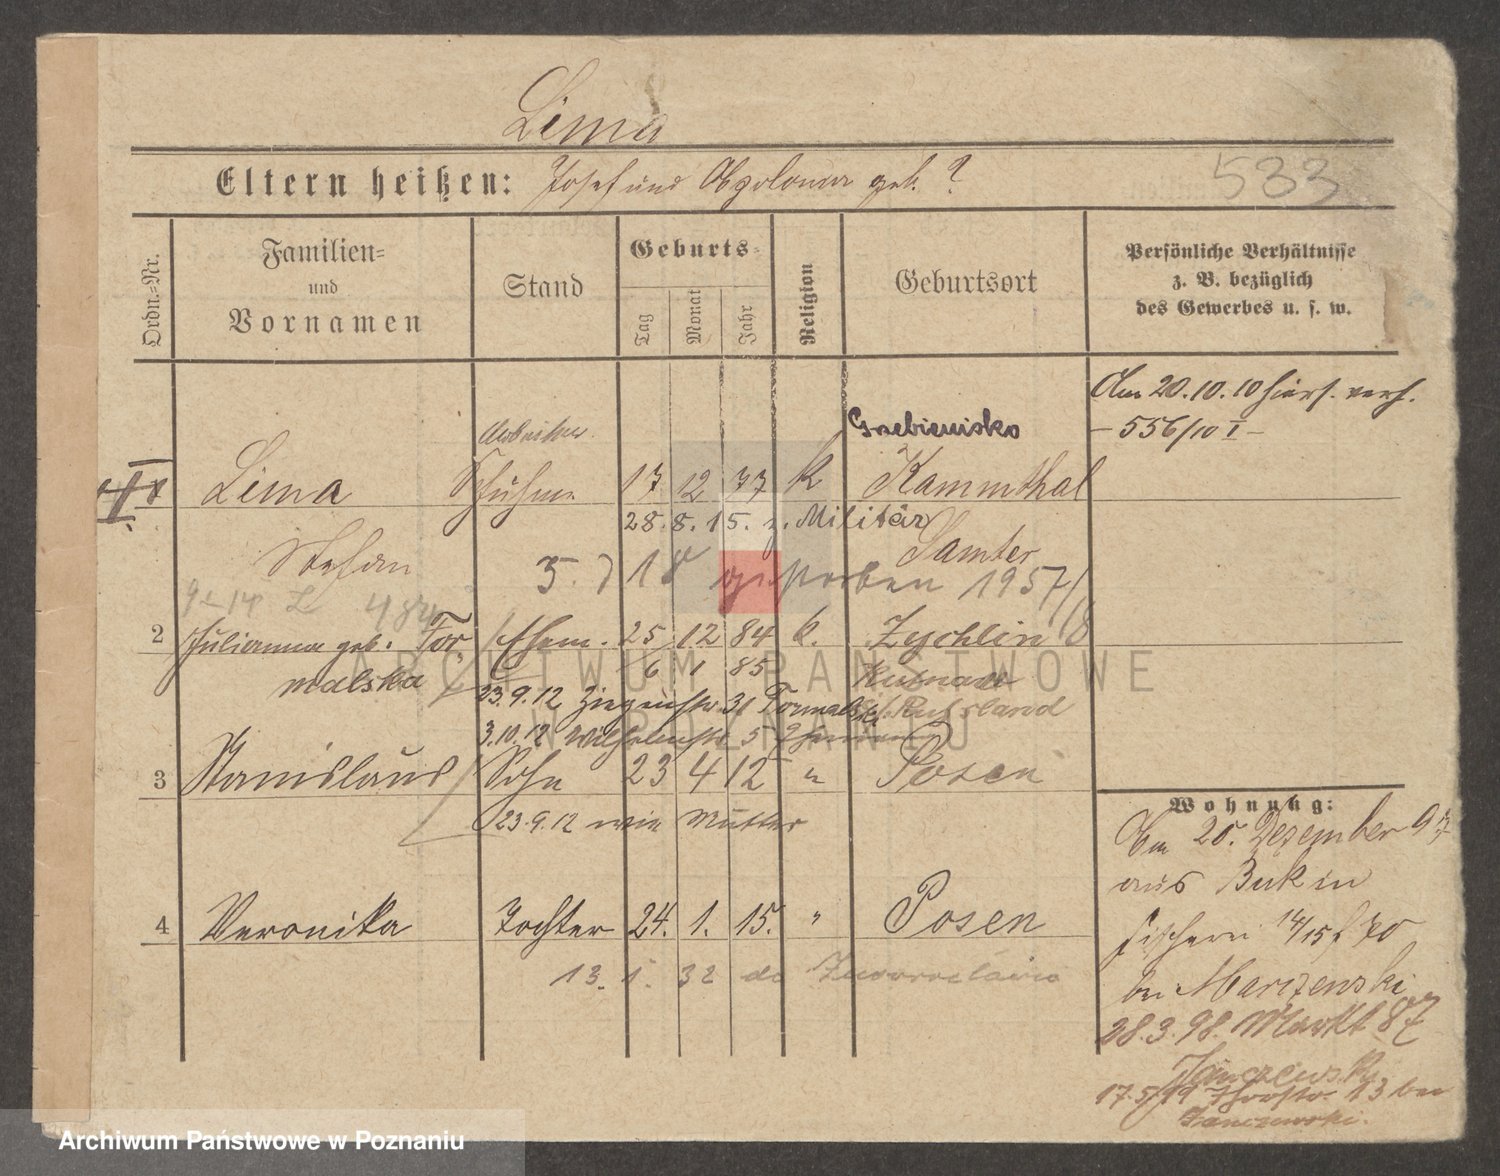 Lima
Eltern heißen: Josef und Apolonia geb. ?
533
Ordn.-Nr.
Familien-
und
Vornamen
Stand
Geburts-
Tag
Monat
Jahr
Religion
Geburtsort
Persönliche Verhältnisse
z. B. bezüglich
des Gewerbes u. s. w.
Am 20.10.10 hiers. verh.
– 556/10 I –
Arbeiter
Grzebienisko
Lima 17 12 77 k Kammthal
28. 8. 15. z. Militär
Stefan Samter
5. 18 gestorben 1957/18
2 Julianna geb. Tor- Ehefr. 25 12 84 k. Zychlin
malska 6 1 85 Kutnar
23.9.12 31 Tormalski Rußland
3.10.12 5
3 Stanislaus Sohn 23 4 12 " Posen
23.9.12 wie Mutter
4 Veronika Tochter 24. 1. 15. " Posen
13. 1. 32
Wohnung:
Am 20. Dezember 97
aus Bukin
Fischerei 14/15
bei
28.3.98. Markt 87
Janczewski
17.5.99 13 bei
Janczewski.
ARCHIWUM PAŃSTWOWE
W POZNANIU
Archiwum Państwowe w Poznaniu